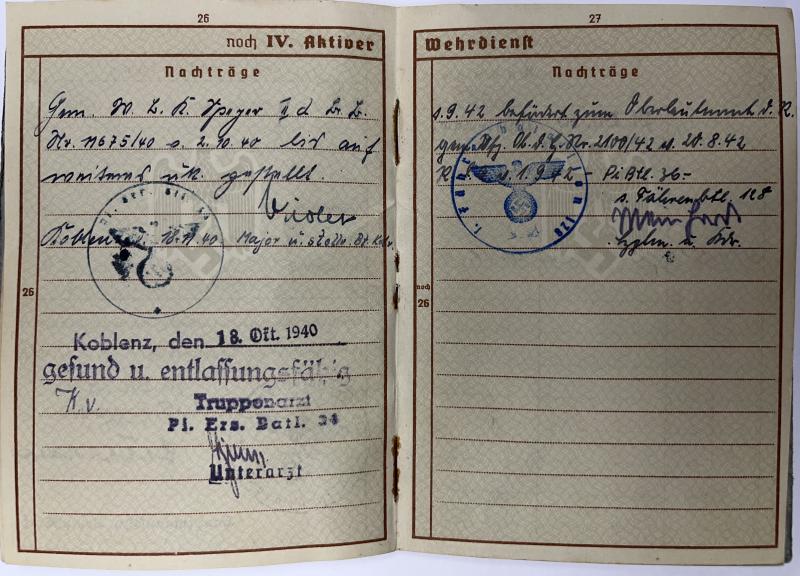 26
noch IV. Aktiver
Nachträge
Gem. W. B. K. Speyer II d Br. B.
Nr. 11675/40 v. 2.10.40 bis auf
weiteres uk gestellt.
Koblenz 18.10.40 Major u. stellv. Btl. Kdr.
26
Koblenz, den 18. Okt. 1940
gesund u. entlassungsfähig
K.v.
Truppenarzt
Pi. Ers. Batl. 34
Unterarzt
27
Wehrdienst
Nachträge
1.9.42 befördert zum Oberleutnant d. R.
gem. Vfg. O.d.E. Nr. 2100/42 v. 20.8.42
1.9.42 - Pi. Btl. 36 -
1. Fährenbtl. 128
Hptm. u. Kdr.
noch
26